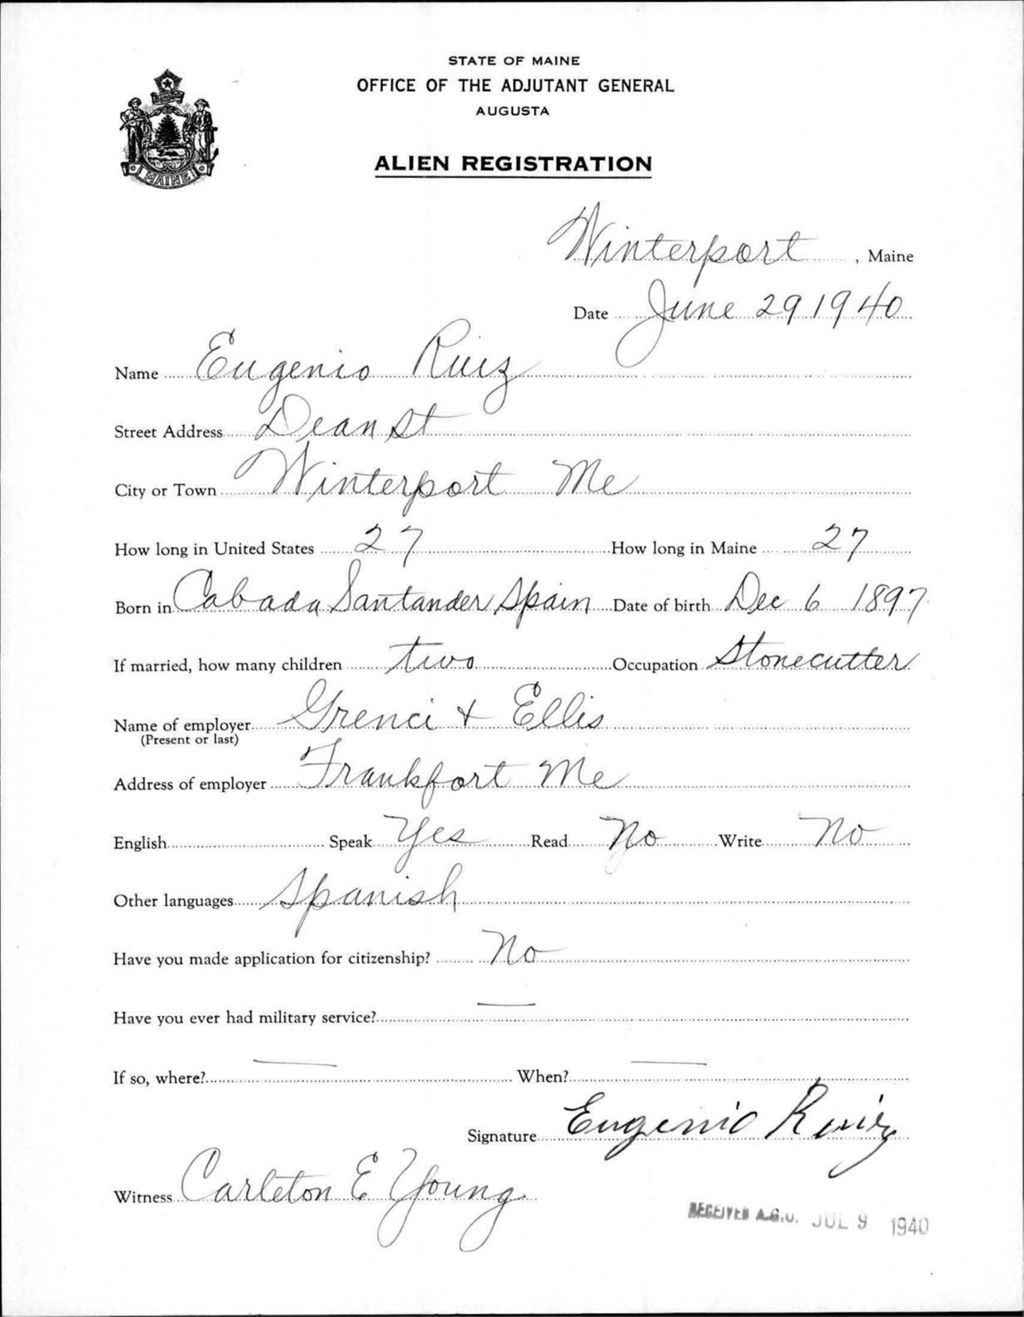 STATE OF MAINE
OFFICE OF THE ADJUTANT GENERAL
AUGUSTA
ALIEN REGISTRATION
MAINE
Winterport, Maine
Date June 29 1940
Name Eugenio Ruiz
Street Address Dean St
City or Town Winterport Me
How long in United States 27 How long in Maine 27
Born in Cabada Santander Spain Date of birth Dec 6 1897
If married, how many children two Occupation Stonecutter
Name of employer Grenci + Ellis
(Present or last)
Address of employer Frankfort Me
English Speak Yes Read No Write No
Other languages Spanish
Have you made application for citizenship? No
Have you ever had military service? —
If so, where? — When? —
Signature Eugenio Ruiz
Witness Carleton E Young
RECEIVED A.G.O. JUL 9 1940